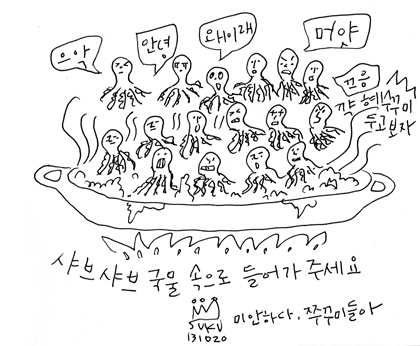 으악
안녕
왜이래
머얏
끄음
두고보자
샤브샤브 국물 속으로 들어가 주세요
SUKU
131020
미안하다, 쭈꾸미들아